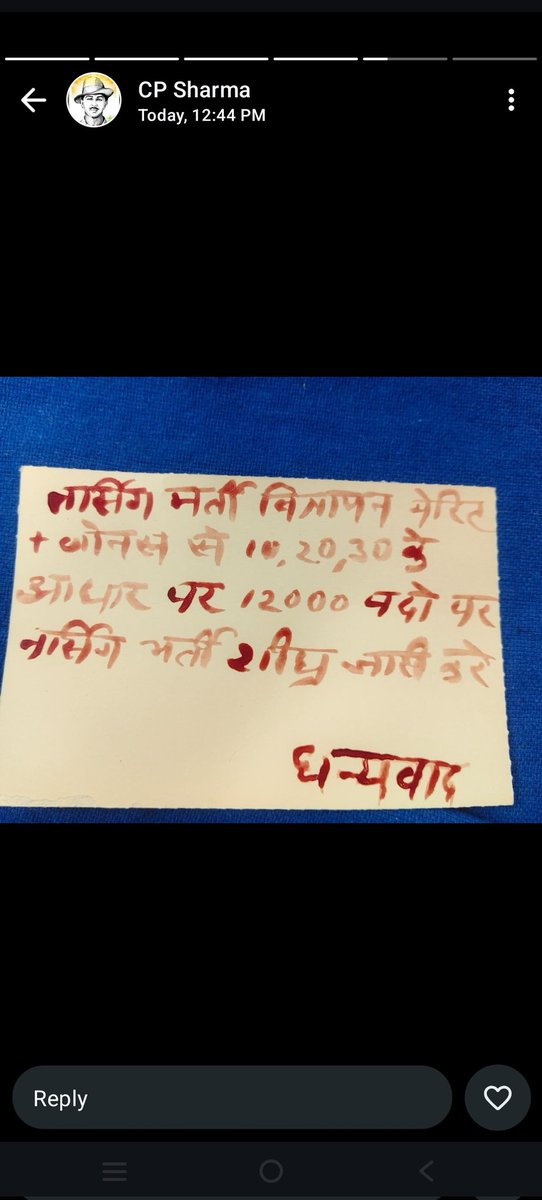 CP Sharma
Today, 12:44 PM
नर्सिग भर्ती विज्ञापन मेरिट
+ बोनस से 10,20,30 के
आधार पर 12000 पदो पर
नर्सिग भर्ती शीघ्र जारी करे
धन्यवाद
Reply